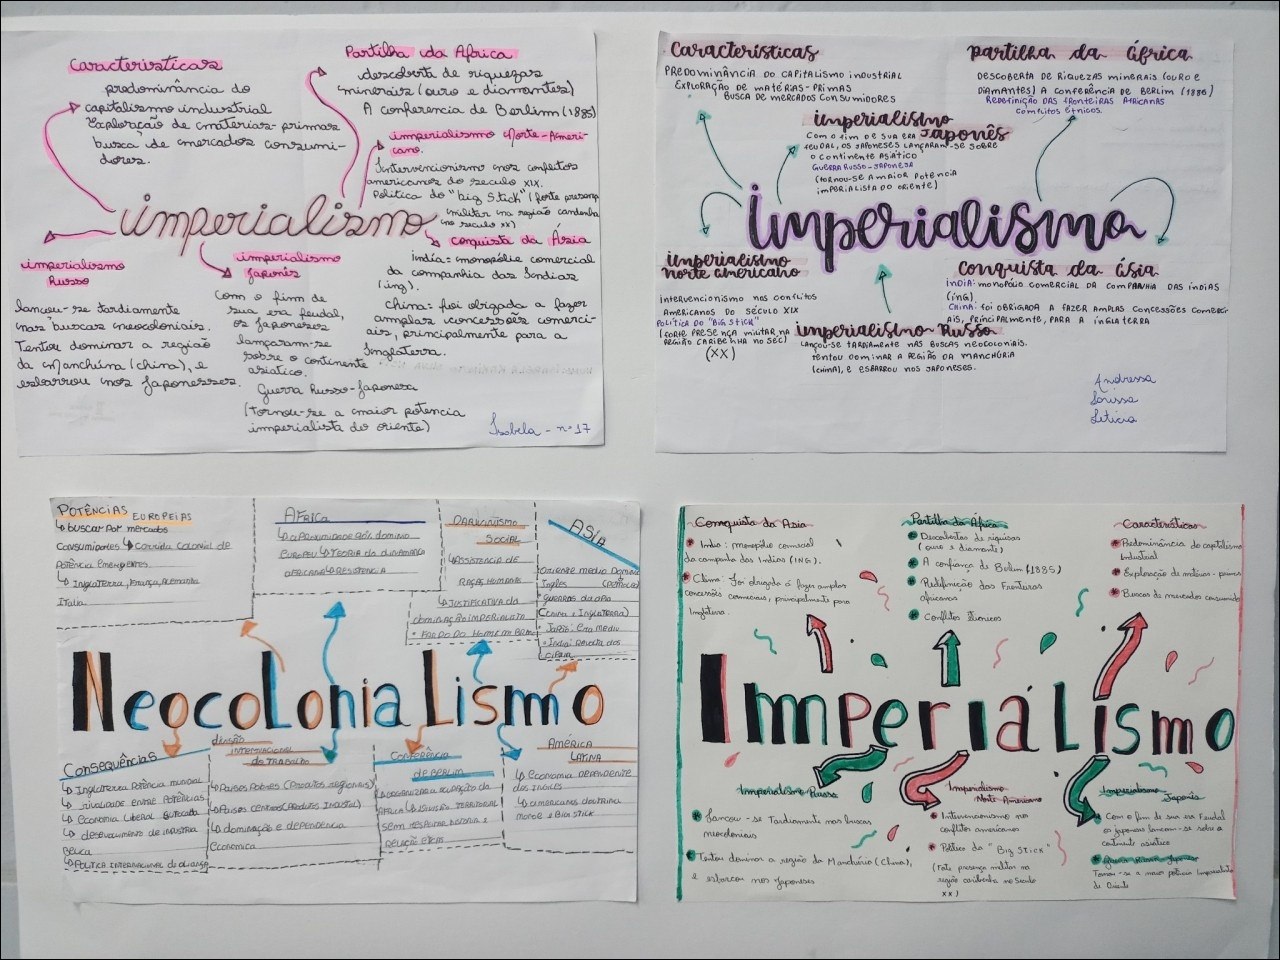 Características
predominância do
capitalismo industrial
Exploração de matérias-primas
busca de mercados consumi-
dores.
Partilha da Africa
descoberta de riquezas
minerais (ouro e diamantes)
A conferencia de Berlim (1885)
imperialismo Norte-Ameri-
cano.
Intervencionismo nos conflitos
americanos do seculo XIX.
Política do "big Stick" (forte presença
militar na região
no seculo XX)
imperialismo
imperialismo
Russo
lançou-se tardiamente
nas buscas neocoloniais.
Tentou dominar a região
da Manchúria (china), e
esbarrou nos Japonesses.
imperialismo
Japonês
Com o fim de
sua era feudal,
os Japoneses
lançaram-se
sobre o continente
asiatico.
Guerra Russo-Japonesa
(Tornou-se a maior potencia
imperialista do oriente)
conquista da Ásia
índia: monopólio comercial
da companhia das Índias
(ing).
china: foi obrigada a fazer
amplas concessões comerci-
ais, principalmente para a
Inglaterra.
Isabela - nº 17
Características
PREDOMINÂNCIA DO CAPITALISMO INDUSTRIAL
EXPLORAÇÃO DE MATÉRIAS-PRIMAS
BUSCA DE MERCADOS CONSUMIDORES
partilha da África
DESCOBERTA DE RIQUEZAS MINERAIS (OURO E
DIAMANTES) A CONFERÊNCIA DE BERLIM (1886)
REDEFINIÇÃO DAS FRONTEIRAS AFRICANAS
CONFLITOS ÉTNICOS.
imperialismo
Japonês
COM O FIM DE SUA ERA
FEUDAL, OS JAPONESES LANÇARAM-SE SOBRE
O CONTINENTE ASIÁTICO
GUERRA RUSSO-JAPONESA
(TORNOU-SE A MAIOR POTÊNCIA
IMPERIALISTA DO ORIENTE)
imperialismo
imperialismo
norte americano
INTERVENCIONISMO NOS CONFLITOS
AMERICANOS DO SÉCULO XIX
POLÍTICA DO "BIG STICK"
(FORTE PRESENÇA MILITAR NA
REGIÃO CARIBENHA NO SEC)
(XX)
imperialismo Russo
LANÇOU-SE TARDIAMENTE NAS BUSCAS NEOCOLONIAIS.
TENTOU DOMINAR A REGIÃO DA MANCHÚRIA
(CHINA), E ESBARROU NOS JAPONESES.
conquista da ásia
ÍNDIA: MONOPÓLIO COMERCIAL DA COMPANHIA DAS ÍNDIAS
(ING).
CHINA: FOI OBRIGADA A FAZER AMPLAS CONCESSÕES COMERCI
AIS, PRINCIPALMENTE, PARA A INGLATERRA
Andressa
Larissa
Letícia
POTÊNCIAS EUROPEIAS
buscar por mercados
consumidores Corrida Colonial de
Potência Emergentes
Inglaterra, França, Alemanha
Italia.
AFRICA
domínio
EUROPEU TEORIA do
AFRICANA RESISTÊNCIA
DARWINISMO
SOCIAL
EXISTÊNCIA DE
RAÇAS HUMANAS
JUSTIFICATIVA da
dominação imperialista
FARDO DO HOMEM BRANCO
ASIA
ORIENTE MÉDIO Domínio
Inglês
GUERRAS do ópio
(CHINA E INGLATERRA)
Japão: Era Meiji
India: Revolta dos
CIPAIA
NeocoLoniaLismo
Consequências
Inglaterra Potência mundial
rivalidade entre potências
Economia Liberal
desenvolvimento de industria
Belica
POLITICA INTERNACIONAL de aliança
divisão
internacional
do TRABALHO
Países Pobres (Produtos regionais)
Países centros (Produtos Industrial)
dominação e dependência
Economica
CONFERÊNCIA
de BERLIM
AFRICA DIVISÃO TERRITORIAL
RELAÇÃO
AMÉRICA
LATINA
ECONOMIA DEPENDENTE
dos INGLÊS
AMERICANOS DOUTRINA
MONROE e BIG STICK
Conquista da Asia
India: monopólio comercial
da campanha das Indios (ING).
China: Foi obrigada a fazer amplas
concessões comerciais, principalmente para
Inglaterra.
Partilha da África
Descobertas de riquisas
(ouro e diamante)
A confiança de Belim (1885)
Redefinição das Fronteiras
africanas
Conflitos étnicos
Características
Predominância do capitalismo
industrial
Exploração de matérias-primas
Buscas de mercados consumido
Imperiálismo
Imperialismo Russo
Lançou-se Tardiamente nas buscas
neocoloniais
Tentou dominar a região da Manchúria (China),
e esbarcou nos Japoneses
Imperialismo
Norte Americano
Intervensionismo nos
conflitos americanos
Politica da "Big Stick"
(Forte presença militar na
região caribenha no Século
XX)
Imperialismo
Japonês
Com o fim de sua era Feudal
os japoneses lancaram-se sobre o
continente asiatico
Tornou-se a maior potência Imperialista
do Oriente